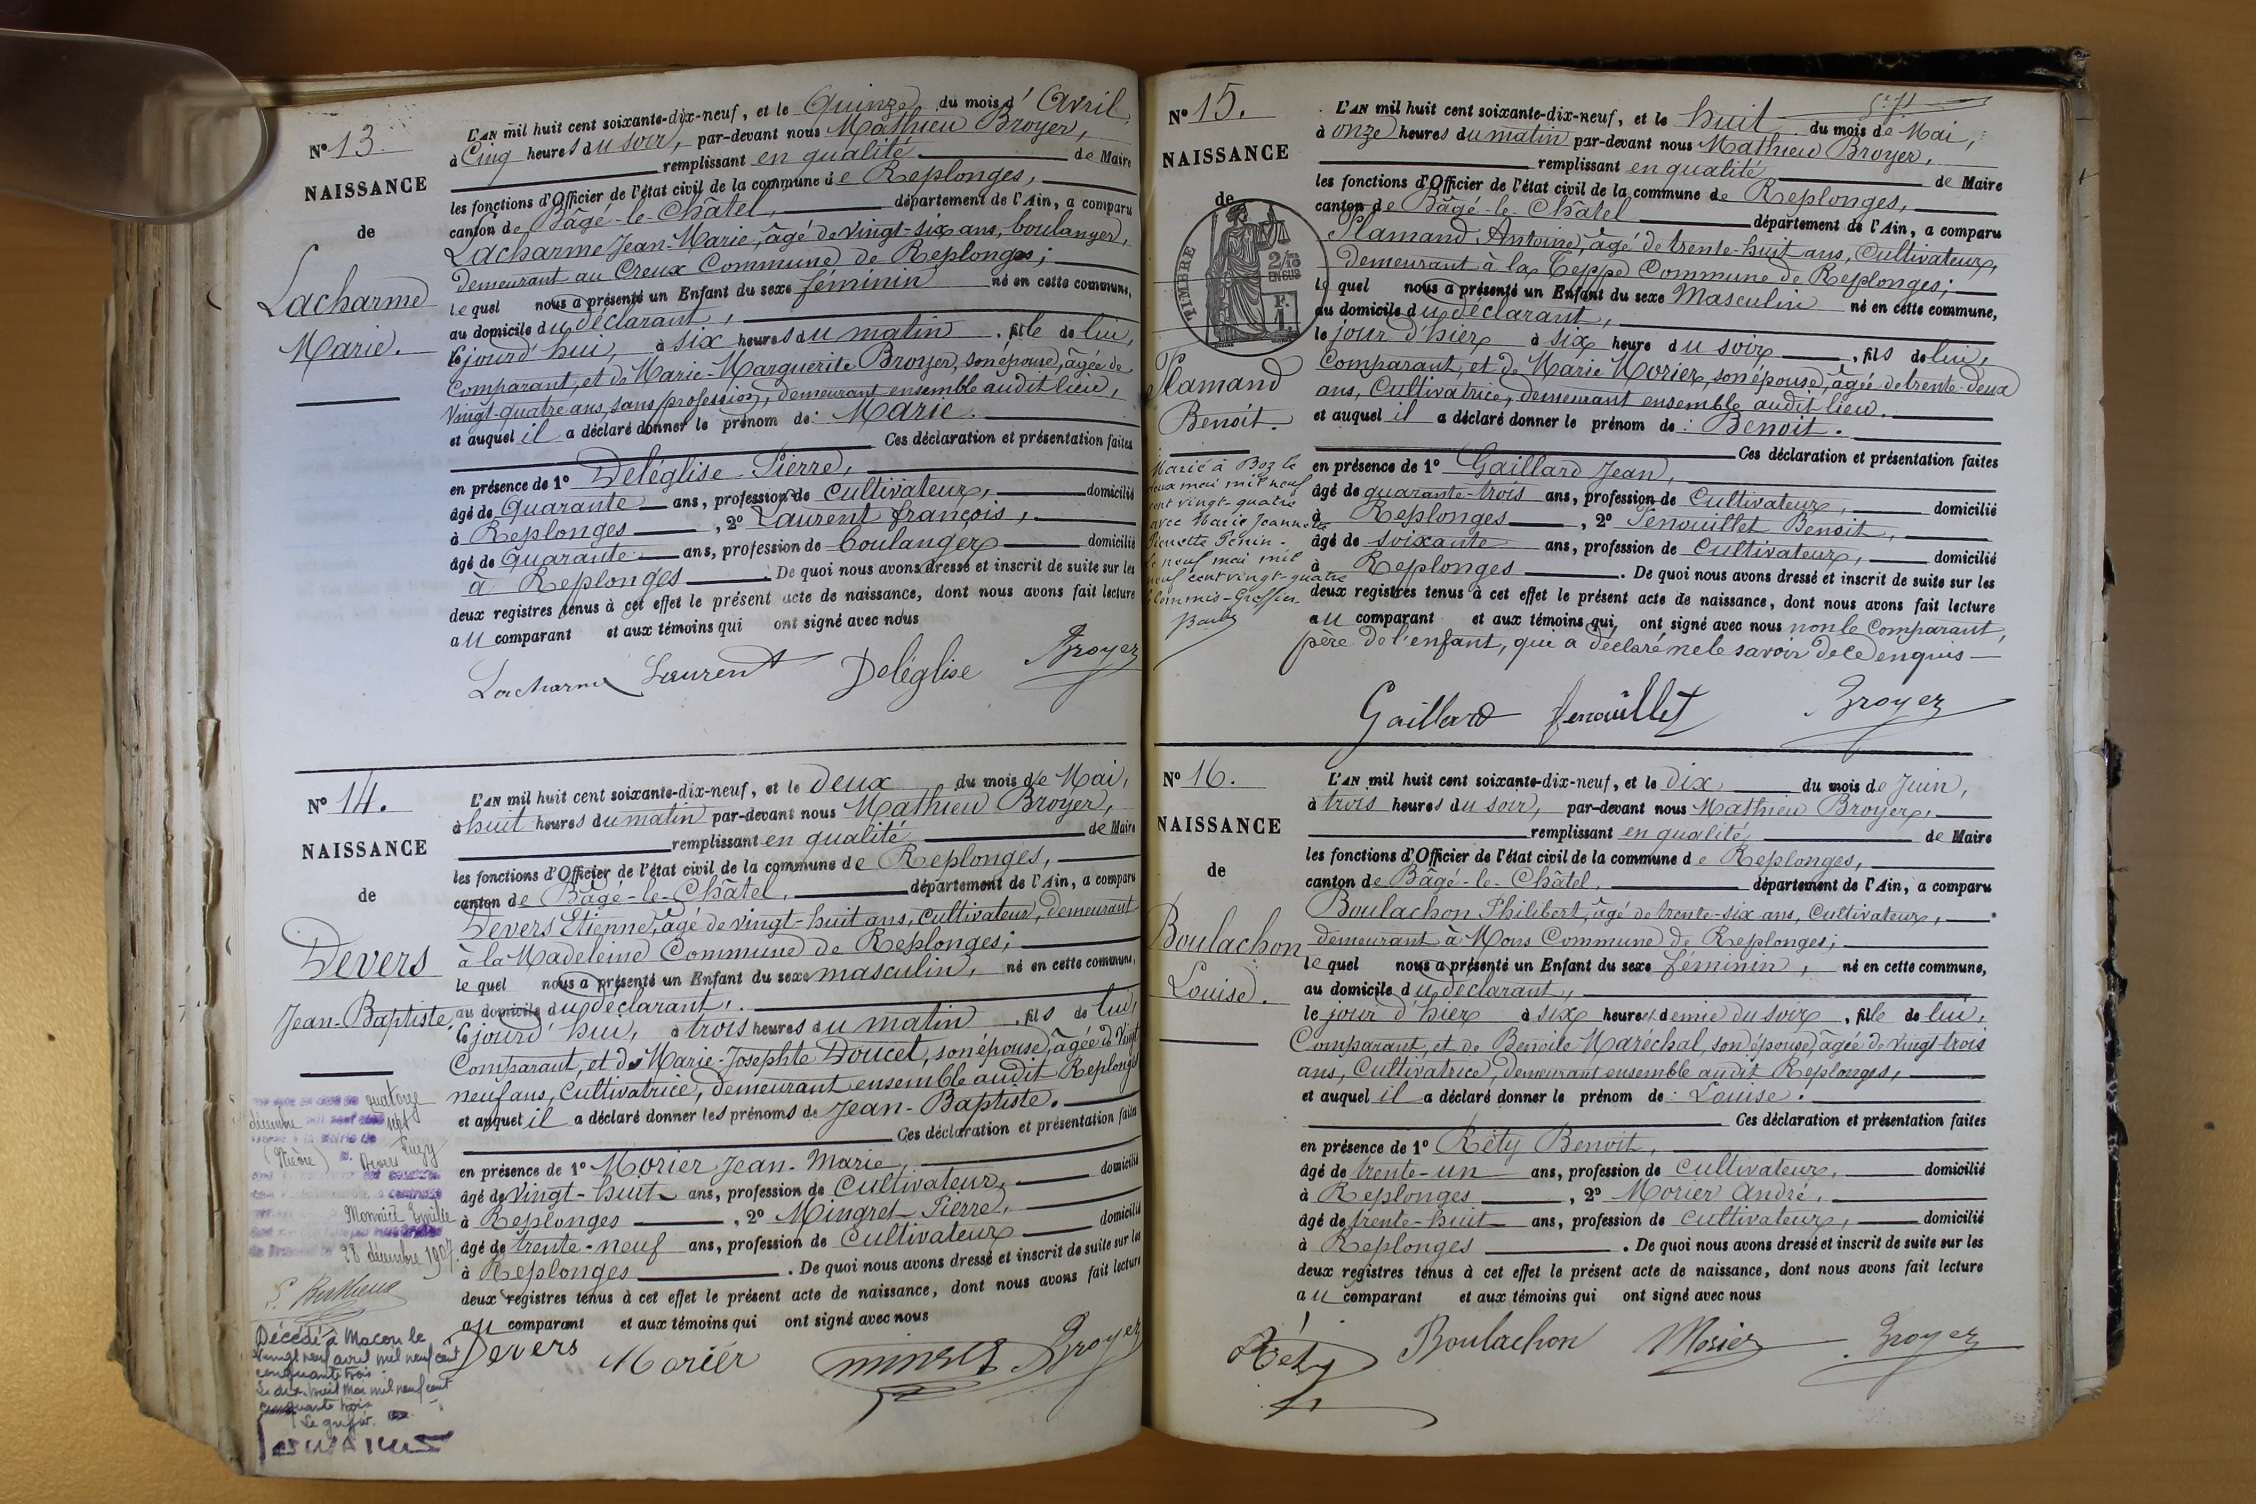 N° 13.
NAISSANCE
de
Lacharme
Marie.
L'AN mil huit cent soixante-dix-neuf, et le Quinze du mois d'Avril,
à Cinq heures du soir, par-devant nous Mathieu Broyer,
remplissant en qualité de Maire
les fonctions d'Officier de l'état civil de la commune de Replonges,
canton de Bâgé-le-Châtel, département de l'Ain, a comparu
Lacharme Jean-Marie, âgé de vingt-six ans, boulanger,
demeurant au Creux Commune de Replonges;
le quel nous a présenté un Enfant du sexe féminin né en cette commune,
au domicile du déclarant,
le jourd'hui, à six heures du matin, fille de lui,
Comparant, et de Marie-Marguerite Broyer, son épouse, âgée de
Vingt-quatre ans, sans profession, demeurant ensemble audit lieu,
et auquel il a déclaré donner le prénom de: Marie.
Ces déclaration et présentation faites
en présence de 1° Deléglise Pierre,
âgé de Quarante ans, profession de Cultivateur, domicilié
à Replonges, 2° Laurent françois,
âgé de Quarante ans, profession de boulanger domicilié
à Replonges. De quoi nous avons dressé et inscrit de suite sur les
deux registres tenus à cet effet le présent acte de naissance, dont nous avons fait lecture
au comparant et aux témoins qui ont signé avec nous
Lacharme Laurent Deléglise Broyer
N° 14.
NAISSANCE
de
Devers
Jean-Baptiste,
quatorze
décembre sept
Luzy
(Nièvre) Devers
Monnice Emilie
28 décembre 1907.
Décédé à Macon le
vingt neuf avril mil neuf cent
cinquante trois
Le dix-huit Mai mil neuf cent
cinquante trois
Le greffier.
L'AN mil huit cent soixante-dix-neuf, et le deux du mois de Mai,
à huit heures du matin par-devant nous Mathieu Broyer,
remplissant en qualité de Maire
les fonctions d'Officier de l'état civil de la commune de Replonges,
canton de Bâgé-le-Châtel, département de l'Ain, a comparu
Devers Etienne, âgé de vingt-huit ans, cultivateur, demeurant
à la Madeleine Commune de Replonges;
le quel nous a présenté un Enfant du sexe masculin, né en cette commune,
au domicile du déclarant,
le jourd'hui, à trois heures du matin, fils de lui,
Comparant, et de Marie-Josephte Doucet, son épouse, âgée de Vingt
neuf ans, Cultivatrice, demeurant ensemble audit Replonges
et auquel il a déclaré donner les prénoms de Jean-Baptiste.
Ces déclaration et présentation faites
en présence de 1° Morier Jean-Marie,
âgé de Vingt-huit ans, profession de Cultivateur, domicilié
à Replonges, 2° Mingret Pierre,
âgé de trente-neuf ans, profession de Cultivateur domicilié
à Replonges. De quoi nous avons dressé et inscrit de suite sur les
deux registres tenus à cet effet le présent acte de naissance, dont nous avons fait lecture
au comparant et aux témoins qui ont signé avec nous
Devers Morier Broyer
N° 15.
NAISSANCE
de
TIMBRE
2/10
EN SUS
Flamand
Benoit.
Marié à Boz le
deux mai mil neuf
cent vingt-quatre
avec Marie Jeannette
le neuf mai mil
neuf cent vingt-quatre
Commis-Greffier
L'AN mil huit cent soixante-dix-neuf, et le huit du mois de Mai,
à onze heures du matin par-devant nous Mathieu Broyer,
remplissant en qualité de Maire
les fonctions d'Officier de l'état civil de la commune de Replonges,
canton de Bâgé-le-Châtel département de l'Ain, a comparu
Flamand Antoine, âgé de trente-huit ans, Cultivateur,
demeurant à la Teppe Commune de Replonges;
le quel nous a présenté un Enfant du sexe Masculin né en cette commune,
au domicile du déclarant,
le jour d'hier à six heure du soir, fils de lui,
Comparant, et de Marie Morier, son épouse, âgée de trente-deux
ans, Cultivatrice, demeurant ensemble audit lieu.
et auquel il a déclaré donner le prénom de: Benoit.
Ces déclaration et présentation faites
en présence de 1° Gaillard Jean,
âgé de quarante-trois ans, profession de Cultivateur, domicilié
à Replonges, 2° Fenouillet Benoit,
âgé de soixante ans, profession de Cultivateur, domicilié
à Replonges. De quoi nous avons dressé et inscrit de suite sur les
deux registres tenus à cet effet le présent acte de naissance, dont nous avons fait lecture
au comparant et aux témoins qui ont signé avec nous non le Comparant,
père de l'enfant, qui a déclaré ne le savoir de ce enquis
Gaillard fenouillet Broyer
N° 16.
NAISSANCE
de
Boulachon
Louise.
L'AN mil huit cent soixante-dix-neuf, et le dix du mois de Juin,
à trois heures du soir, par-devant nous Mathieu Broyer,
remplissant en qualité de Maire
les fonctions d'Officier de l'état civil de la commune de Replonges,
canton de Bâgé-le-Châtel, département de l'Ain, a comparu
Boulachon Philibert, âgé de trente-six ans, Cultivateur,
demeurant à Mons Commune de Replonges;
le quel nous a présenté un Enfant du sexe féminin, né en cette commune,
au domicile du déclarant,
le jour d'hier à six heures demie du soir, fille de lui,
Comparant, et de Benoite Maréchal, son épouse, âgée de vingt-trois
ans, Cultivatrice, demeurant ensemble audit Replonges,
et auquel il a déclaré donner le prénom de: Louise.
Ces déclaration et présentation faites
en présence de 1° Réty Benoit,
âgé de trente-un ans, profession de Cultivateur, domicilié
à Replonges, 2° Morier André,
âgé de trente-huit ans, profession de cultivateur, domicilié
à Replonges. De quoi nous avons dressé et inscrit de suite sur les
deux registres tenus à cet effet le présent acte de naissance, dont nous avons fait lecture
au comparant et aux témoins qui ont signé avec nous
Réty Boulachon Morier Broyer